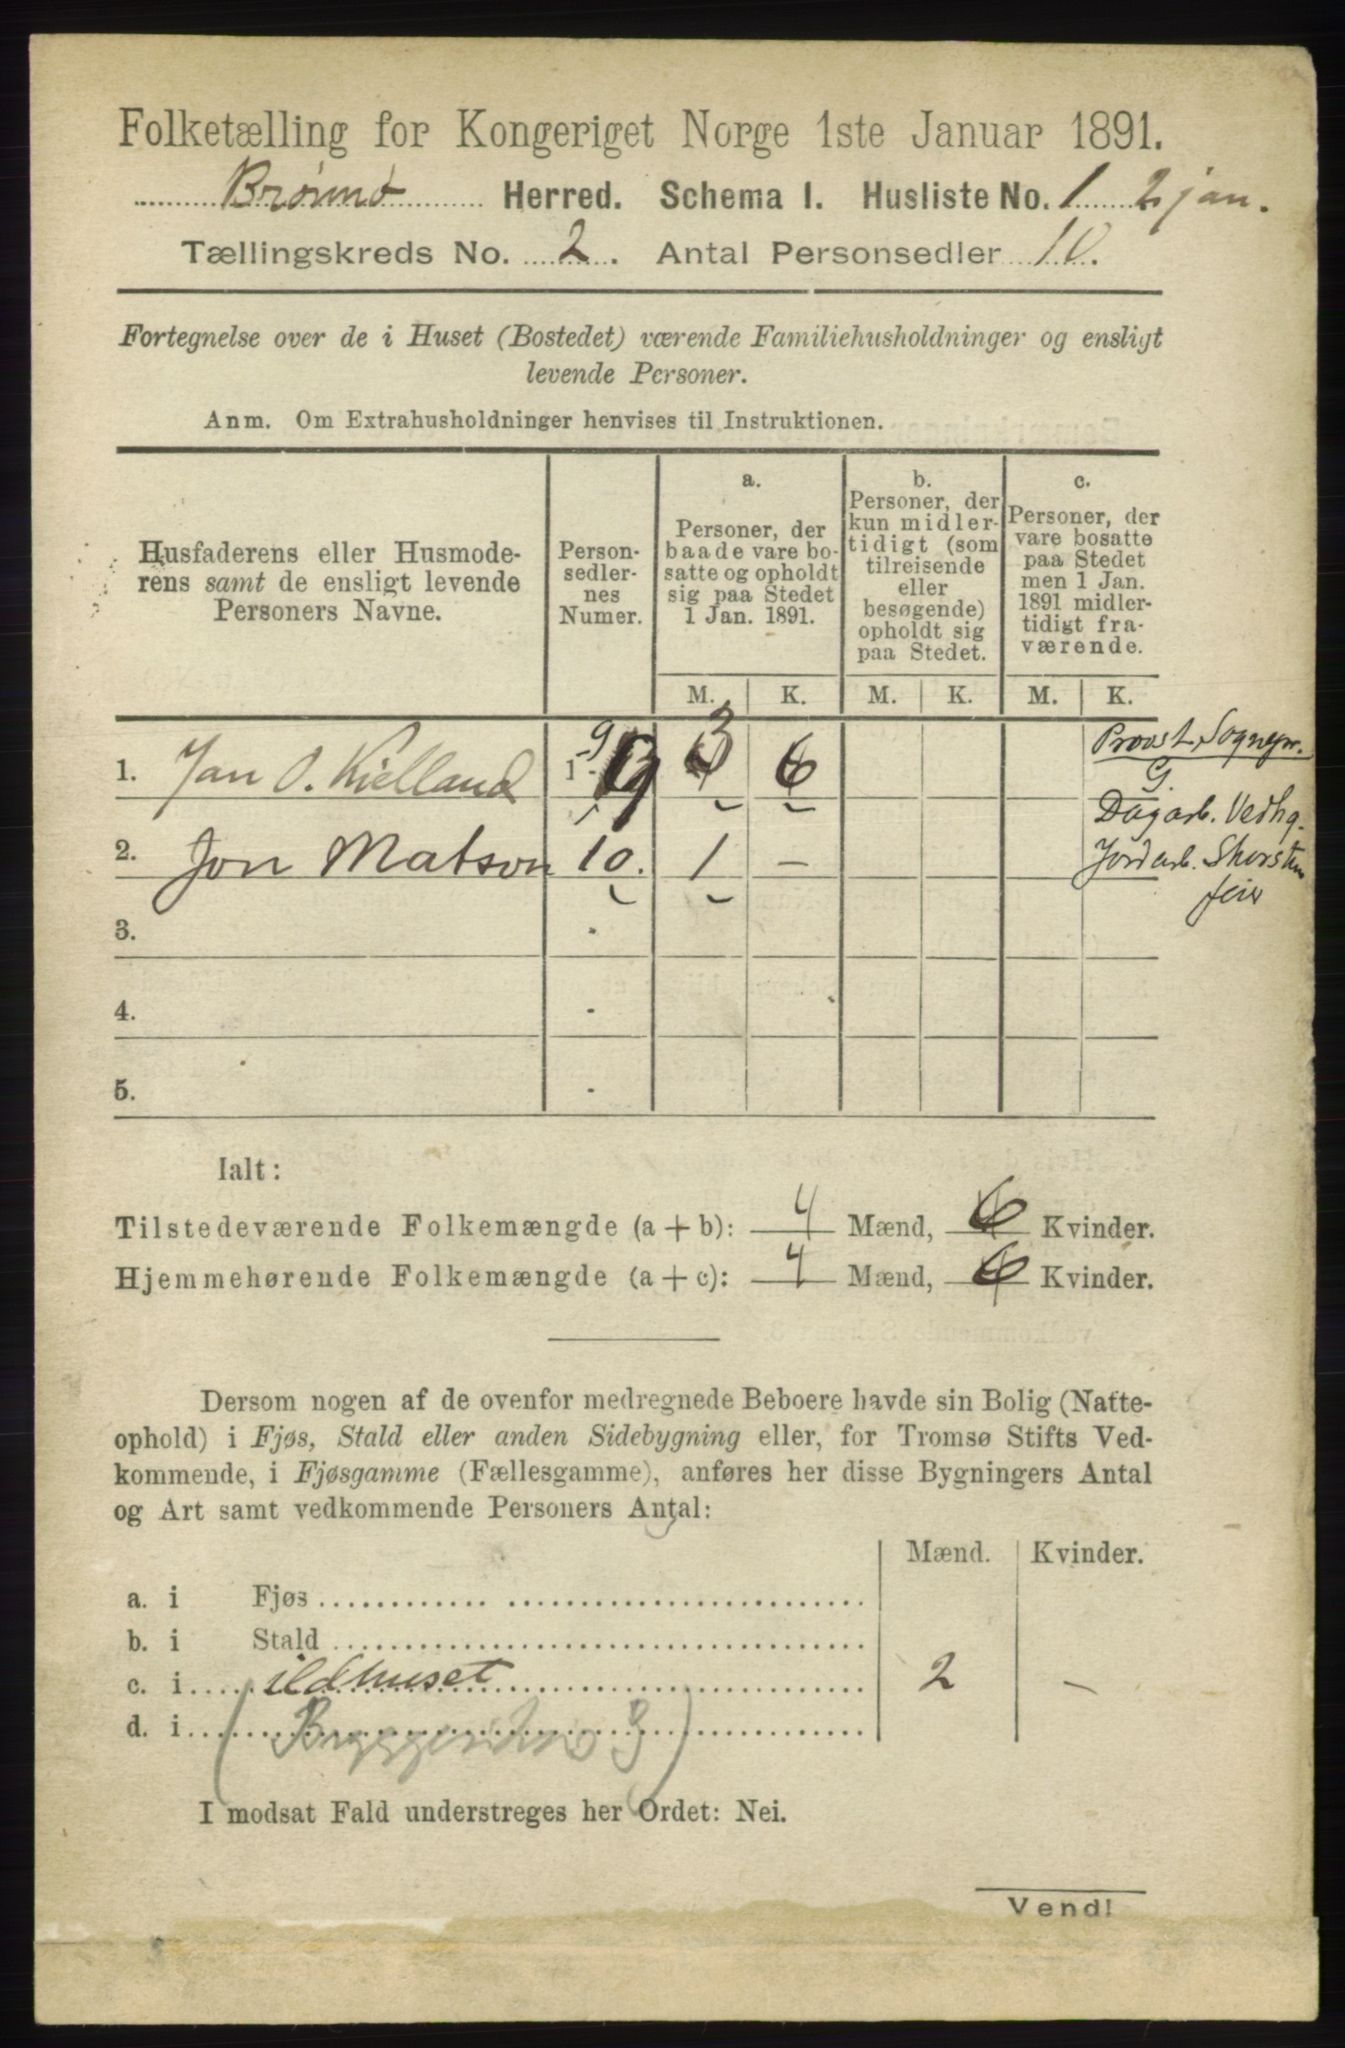 Folketælling for Kongeriget Norge 1ste Januar 1891.
Brønnø Herred. Schema I. Husliste No. 1 2 jan.
Tællingskreds No. 2. Antal Personsedler 10.
Fortegnelse over de i Huset (Bostedet) værende Familiehusholdninger og ensligt
levende Personer.
Anm. Om Extrahusholdninger henvises til Instruktionen.
Husfaderens eller Husmode-
rens samt de ensligt levende
Personers Navne.
Person-
sedler-
nes
Numer.
a.
Personer, der
baade vare bo-
satte og opholdt
sig paa Stedet
1 Jan. 1891.
b.
Personer, der
kun midler-
tidigt (som
tilreisende
eller
besøgende)
opholdt sig
paa Stedet.
c.
Personer, der
vare bosatte
paa Stedet
men 1 Jan.
1891 midler-
tidigt fra-
værende.
M. K. M. K. M. K.
1. Jan O. Kielland 1 - 9 3 6 Provst, Sognepr.
G.
Dagarb. Vedhg.
2. Jon Matson 10. 1 – Jordarb. Skorsten
feier
3. -
4. -
5. -
Ialt:
Tilstedeværende Folkemængde (a + b): 4 Mænd, 6 Kvinder.
Hjemmehørende Folkemængde (a + c): 4 Mænd, 6 Kvinder.
Dersom nogen af de ovenfor medregnede Beboere havde sin Bolig (Natte-
ophold) i Fjøs, Stald eller anden Sidebygning eller, for Tromsø Stifts Ved-
kommende, i Fjøsgamme (Fællesgamme), anføres her disse Bygningers Antal
og Art samt vedkommende Personers Antal:
Mænd. Kvinder.
a. i Fjøs
b. i Stald
c. i ildhuset 2 –
d. i
I modsat Fald understreges her Ordet: Nei.
Vend!